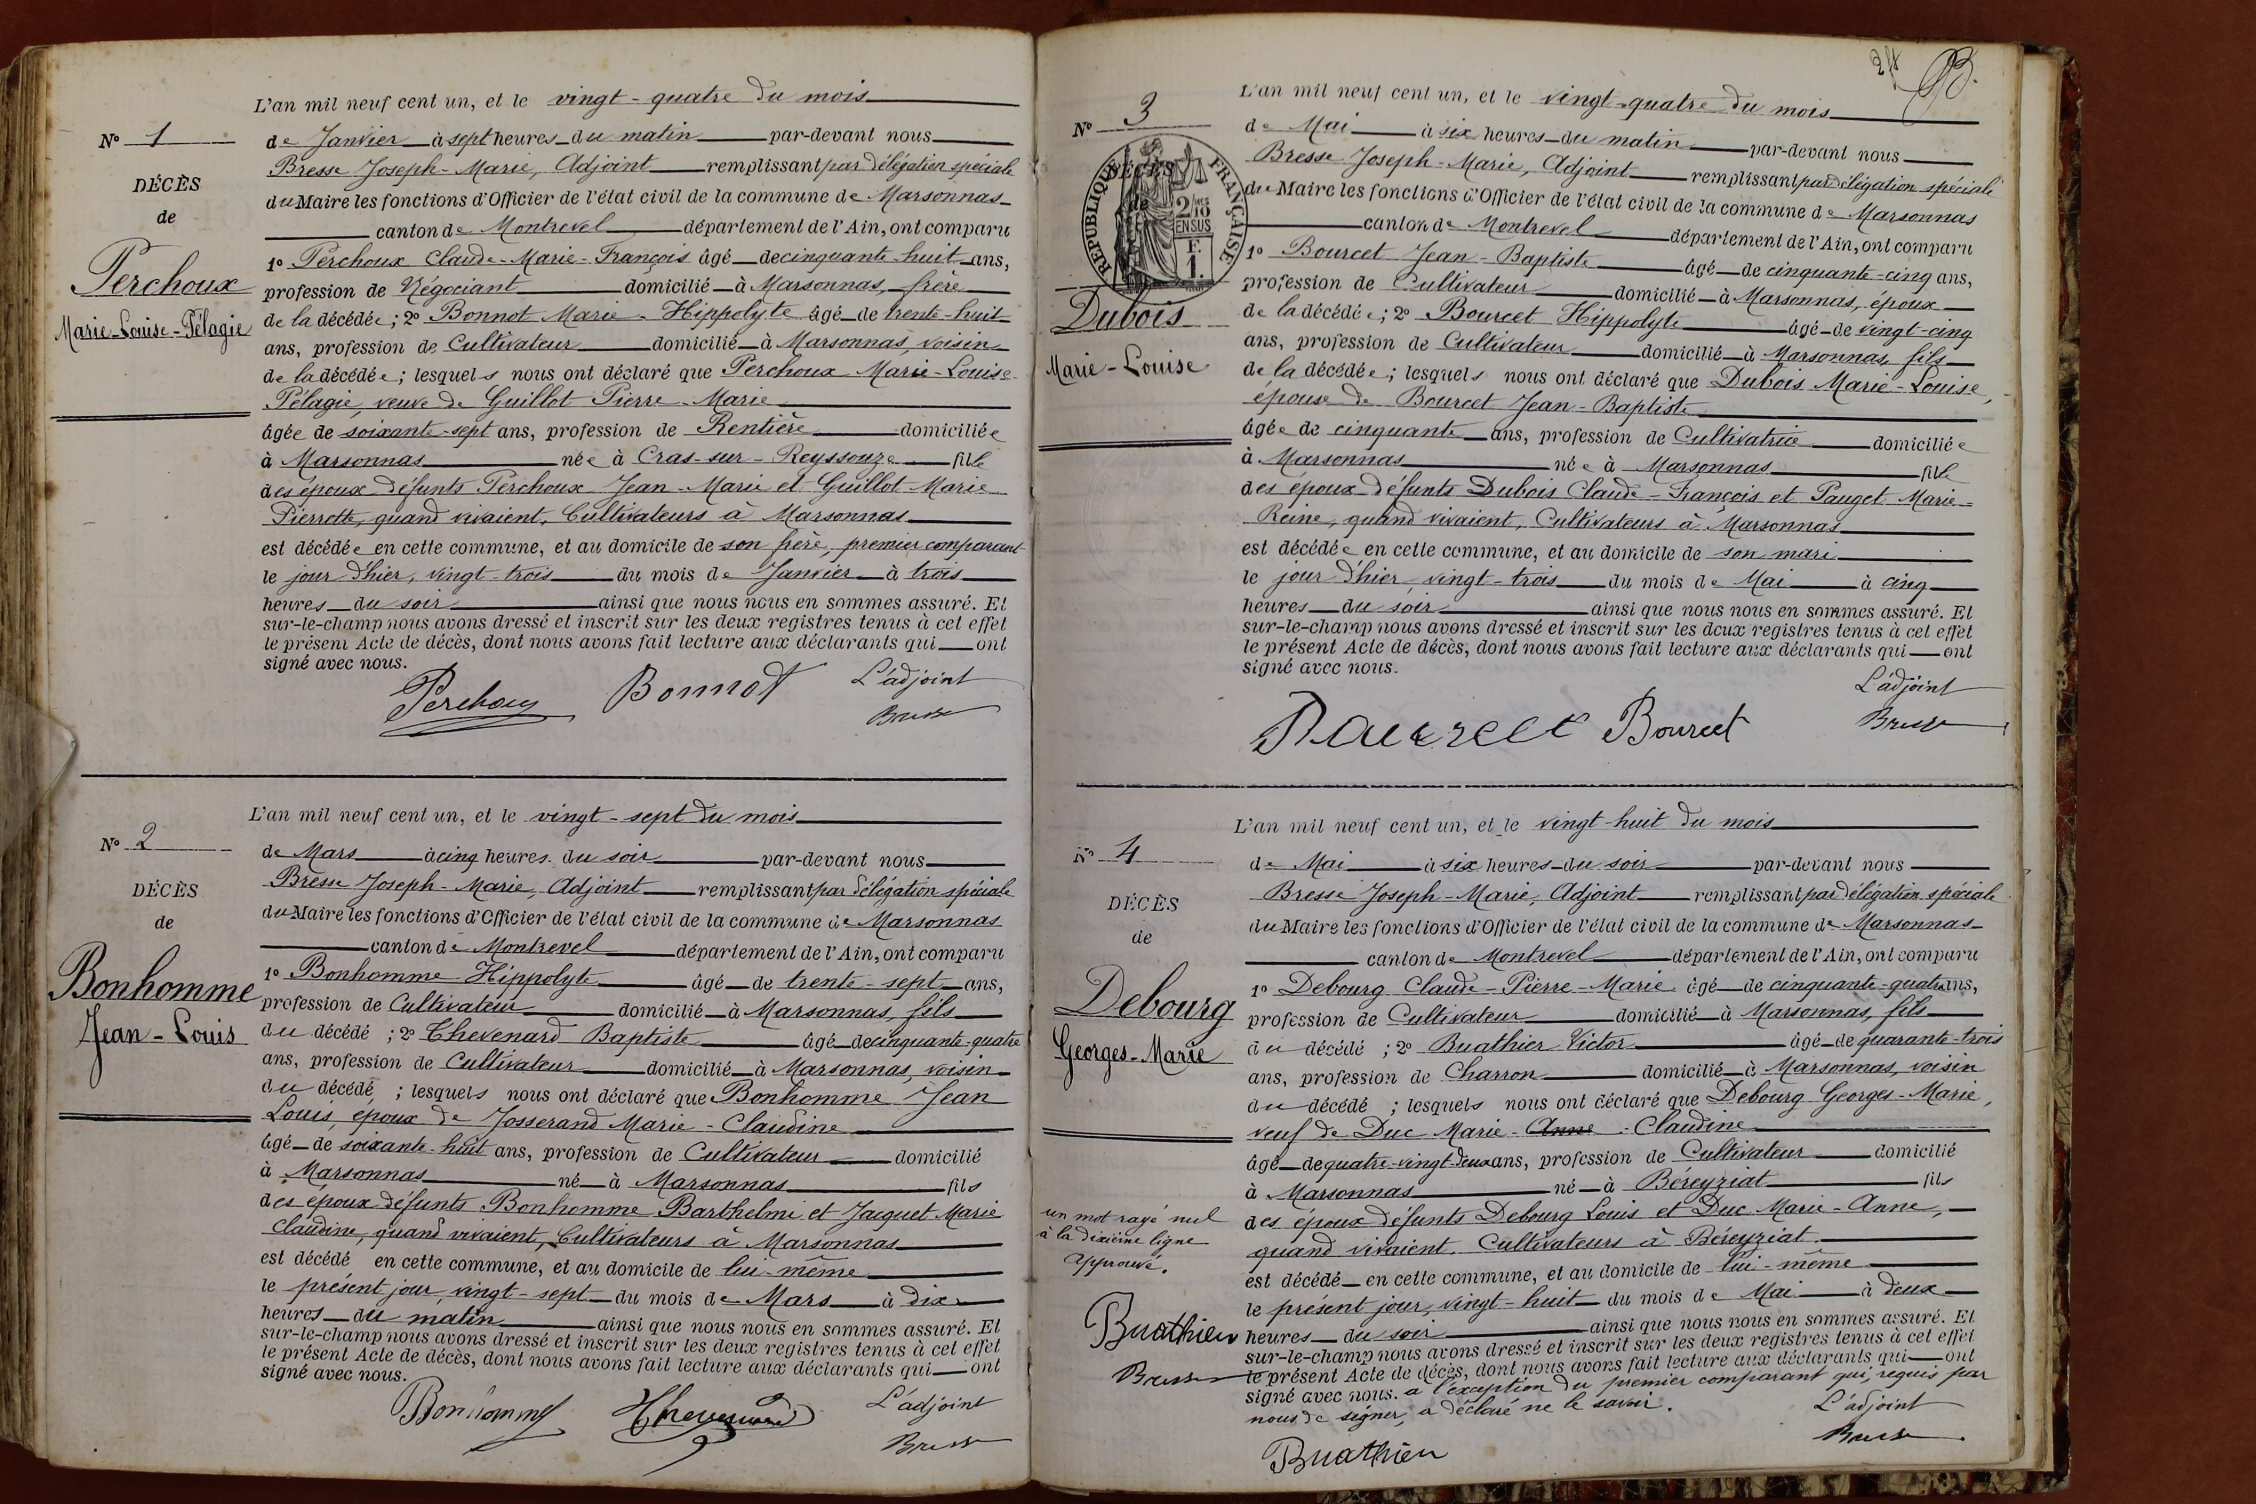 L'an mil neuf cent un, et le vingt-quatre du mois
N° 1
de Janvier à sept heures du matin par-devant nous
Bresse Joseph-Marie, Adjoint remplissant par délégation spéciale
DÉCÈS
du Maire les fonctions d'Officier de l'état civil de la commune de Marsonnas
de
canton de Montrevel département de l'Ain, ont comparu
1° Perchoux Claude-Marie-François âgé de cinquante-huit ans,
Perchoux
profession de Négociant domicilié à Marsonnas, frère
de la décédée; 2° Bonnot Marie-Hippolyte âgé de trente-huit
Marie-Louise-Pélagie
ans, profession de Cultivateur domicilié à Marsonnas, voisin
de la décédée; lesquels nous ont déclaré que Perchoux Marie-Louise-
Pélagie, veuve de Guillot Pierre-Marie
âgée de soixante-sept ans, profession de Rentière domiciliée
à Marsonnas née à Cras-sur-Reyssouze fille
des époux défunts Perchoux Jean-Marie et Guillot Marie
Pierrette, quand vivaient, Cultivateurs à Marsonnas
est décédée en cette commune, et au domicile de son frère, premier comparant
le jour d'hier, vingt-trois du mois de Janvier à trois
heures du soir ainsi que nous nous en sommes assuré. Et
sur-le-champ nous avons dressé et inscrit sur les deux registres tenus à cet effet
le présent Acte de décès, dont nous avons fait lecture aux déclarants qui ont
signé avec nous.
Perchoux Bonnot L'adjoint
Bresse
L'an mil neuf cent un, et le vingt-sept du mois
N° 2
de Mars à cinq heures du soir par-devant nous
Bresse Joseph-Marie, Adjoint remplissant par délégation spéciale
DÉCÈS
du Maire les fonctions d'Officier de l'état civil de la commune de Marsonnas
de
canton de Montrevel département de l'Ain, ont comparu
1° Bonhomme Hippolyte âgé de trente-sept ans,
Bonhomme
profession de Cultivateur domicilié à Marsonnas, fils
Jean-Louis
du décédé; 2° Chevenard Baptiste âgé de cinquante-quatre
ans, profession de Cultivateur domicilié à Marsonnas, voisin
du décédé; lesquels nous ont déclaré que Bonhomme Jean
Louis, époux de Josserand Marie-Claudine
âgé de soixante-huit ans, profession de Cultivateur domicilié
à Marsonnas né à Marsonnas fils
des époux défunts Bonhomme Barthelmi et Jacquet Marie
Claudine, quand vivaient, Cultivateurs à Marsonnas
est décédé en cette commune, et au domicile de lui-même
le présent jour, vingt-sept du mois de Mars à dix
heures du matin ainsi que nous nous en sommes assuré. Et
sur-le-champ nous avons dressé et inscrit sur les deux registres tenus à cet effet
le présent Acte de décès, dont nous avons fait lecture aux déclarants qui ont
signé avec nous.
Bonhomme Chevenard L'adjoint
Bresse
L'an mil neuf cent un, et le vingt-quatre du mois
N° 3
de Mai à six heures du matin par-devant nous
Bresse Joseph-Marie, Adjoint remplissant par délégation spéciale
DÉCÈS
de
RÉPUBLIQUE FRANÇAISE
2/10 EN SUS
F. 1.
du Maire les fonctions d'Officier de l'état civil de la commune de Marsonnas
canton de Montrevel département de l'Ain, ont comparu
1° Bourcet Jean-Baptiste âgé de cinquante-cinq ans,
profession de Cultivateur domicilié à Marsonnas, époux
Dubois
de la décédée; 2° Bourcet Hippolyte âgé de vingt-cinq
ans, profession de Cultivateur domicilié à Marsonnas, fils
Marie-Louise
de la décédée; lesquels nous ont déclaré que Dubois Marie-Louise,
épouse de Bourcet Jean-Baptiste
âgée de cinquante ans, profession de Cultivatrice domiciliée
à Marsonnas née à Marsonnas fille
des époux défunts Dubois Claude-François et Pauget Marie-
Reine, quand vivaient, Cultivateurs à Marsonnas
est décédée en cette commune, et au domicile de son mari
le jour d'hier, vingt-trois du mois de Mai à cinq
heures du soir ainsi que nous nous en sommes assuré. Et
sur-le-champ nous avons dressé et inscrit sur les deux registres tenus à cet effet
le présent Acte de décès, dont nous avons fait lecture aux déclarants qui ont
signé avec nous.
Bourcet L'adjoint
Bresse
L'an mil neuf cent un, et le vingt-huit du mois
N° 4
de Mai à six heures du soir par-devant nous
Bresse Joseph-Marie, Adjoint remplissant par délégation spéciale
DÉCÈS
du Maire les fonctions d'Officier de l'état civil de la commune de Marsonnas
de
canton de Montrevel département de l'Ain, ont comparu
1° Debourg Claude-Pierre-Marie âgé de cinquante-quatre ans,
Debourg
profession de Cultivateur domicilié à Marsonnas, fils
Georges-Marie
du décédé; 2° Buathier Victor âgé de quarante-trois
ans, profession de Charron domicilié à Marsonnas, voisin
du décédé; lesquels nous ont déclaré que Debourg Georges-Marie,
veuf de Duc Marie-Anne-Claudine
âgé de quatre-vingt-deux ans, profession de Cultivateur domicilié
à Marsonnas né à Béreyziat fils
un mot rayé nul
à la dixième ligne
Approuvé.
Buathier
Bresse
des époux défunts Debourg Louis et Duc Marie-Anne,
quand vivaient, Cultivateurs à Béreyziat.
est décédé en cette commune, et au domicile de lui-même
le présent jour, vingt-huit du mois de Mai à deux
heures du soir ainsi que nous nous en sommes assuré. Et
sur-le-champ nous avons dressé et inscrit sur les deux registres tenus à cet effet
le présent Acte de décès, dont nous avons fait lecture aux déclarants qui ont
signé avec nous. a l'exception du premier comparant qui, requis par
nous de signer, a déclaré ne le savoir.
L'adjoint
Buathier Bresse